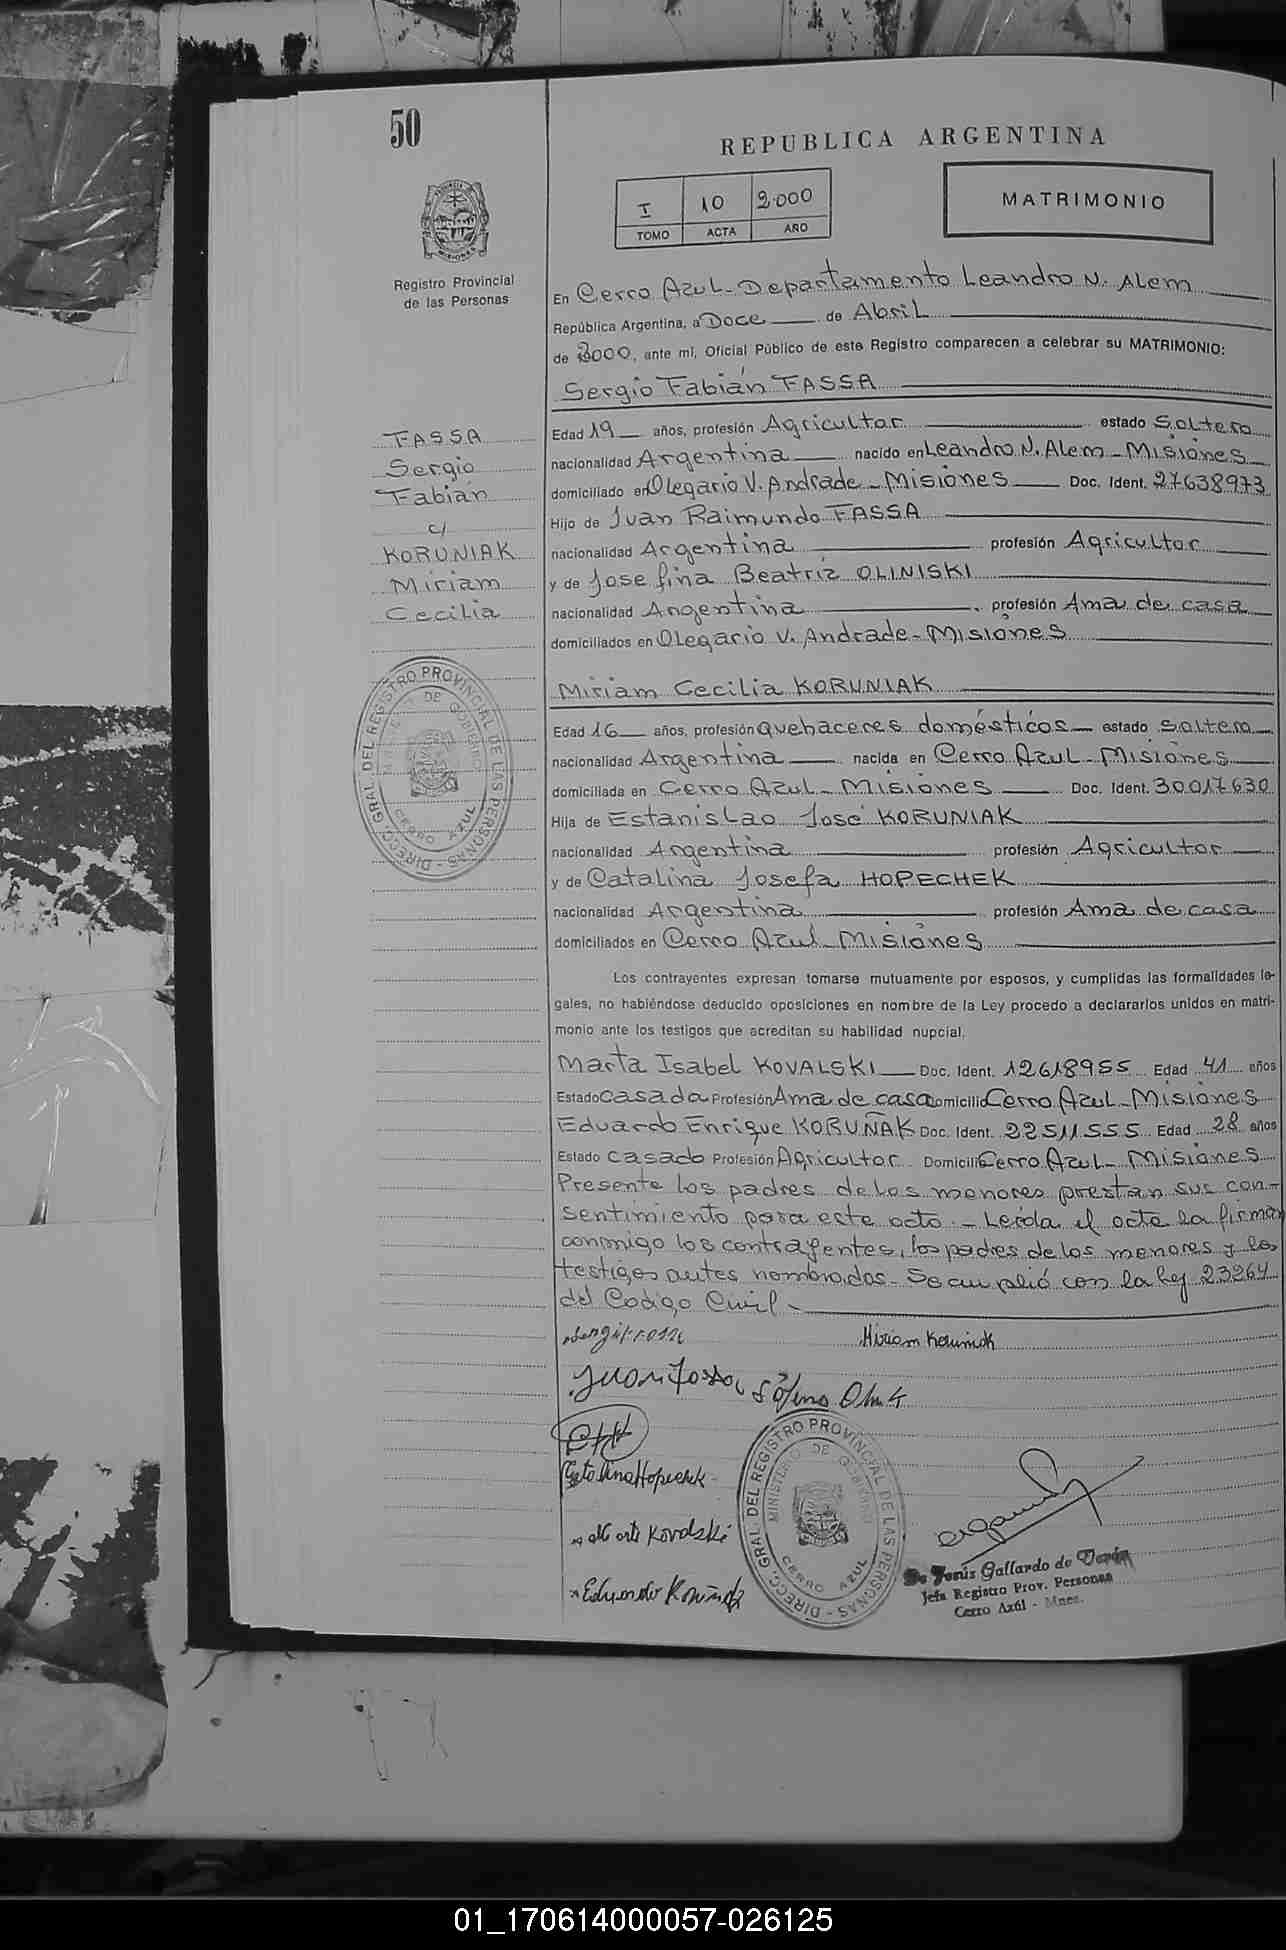 50
REPUBLICA ARGENTINA
I 10 2.000
TOMO ACTA AÑO
MATRIMONIO
Registro Provincial
de las Personas
En Cerro Azul - Departamento Leandro N. Alem
República Argentina, a Doce de Abril
de 2000, ante mi, Oficial Público de este Registro comparecen a celebrar su MATRIMONIO:
Sergio Fabián FASSA
FASSA
Sergio
Fabián
c/
KORUNIAK
Miriam
Cecilia
Edad 19 años, profesión Agricultor estado Soltero
nacionalidad Argentina nacido en Leandro N. Alem - Misiones
domiciliado en Olegario V. Andrade - Misiones Doc. Ident. 27638973
Hijo de Juan Raimundo FASSA
nacionalidad Argentina profesión Agricultor
y de Josefina Beatriz OLINISKI
nacionalidad Argentina profesión Ama de casa
domiciliados en Olegario V. Andrade - Misiones
Miriam Cecilia KORUNIAK
Edad 16 años, profesión Quehaceres domésticos estado Soltera
nacionalidad Argentina nacida en Cerro Azul - Misiones
domiciliada en Cerro Azul - Misiones Doc. Ident. 30017630
Hija de Estanislao José KORUNIAK
nacionalidad Argentina profesión Agricultor
y de Catalina Josefa HOPECHEK
nacionalidad Argentina profesión Ama de casa
domiciliados en Cerro Azul - Misiones
DIRECC. GRAL. DEL REGISTRO PROVINCIAL DE LAS PERSONAS -
MINISTERIO DE GOBIERNO
CERRO AZUL
Los contrayentes expresan tomarse mutuamente por esposos, y cumplidas las formalidades le-
gales, no habiéndose deducido oposiciones en nombre de la Ley procedo a declararlos unidos en matri-
monio ante los testigos que acreditan su habilidad nupcial.
Marta Isabel KOVALSKI Doc. Ident. 12618955 Edad 41 años
Estado casada Profesión Ama de casa Domicilio Cerro Azul - Misiones
Eduardo Enrique KORUÑAK Doc. Ident. 22511555 Edad 28 años
Estado casado Profesión Agricultor Domicilio Cerro Azul - Misiones
Presente los padres de los menores prestan sus con-
sentimiento para este acto. - Leída el acta la firman
conmigo los contrayentes, los padres de los menores y los
testigos antes nombrados - Se cumplió con la ley 23264
del Codigo Civil -
Miriam Koruniak
Juan Fassa
Catalina Hopechek
Marta Kovalski
Eduardo Koruñak
DIRECC. GRAL. DEL REGISTRO PROVINCIAL DE LAS PERSONAS -
MINISTERIO DE GOBIERNO
CERRO AZUL
De Jesús Gallardo de
Jefa Registro Prov. Personas
Cerro Azúl - Mnes.
01_170614000057-026125